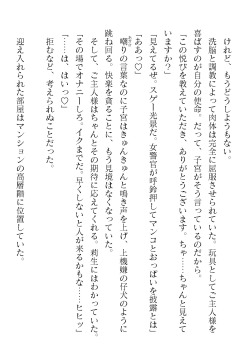 けれど、もうどうしようもない。
洗脳と調教によって肉体は完全に屈服させられていた。玩具としてご主人様を
喜ばすのが自分の使命。だって、子宮がそう言っているのだから。
「この悦びを教えていただき、ありがとうございます。ちゃ……ちゃんと見えて
いますか？」
「見えてるぜ、スゲー光景だ。女警官が呼鈴押してマンコとおっぱいを披露とは」
「ああっ♡」
嘲りの言葉なのに子宮はきゅんきゅんと鳴き声を上げ、上機嫌の仔犬のように
跳ね回る。快楽を貪ることに、もう見境はなくなっていた。
そして、ご主人様はちゃんとその期待に応えてくれる。莉生にはわかっていた。
「その場でオナニーしろ。イクまでだ。早くしないと人が来るかもな……ヒヒッ」
「……は、はいっ♡」
拒むなど、考えられぬことだった。
迎え入れられた部屋はマンションの高層階に位置していた。